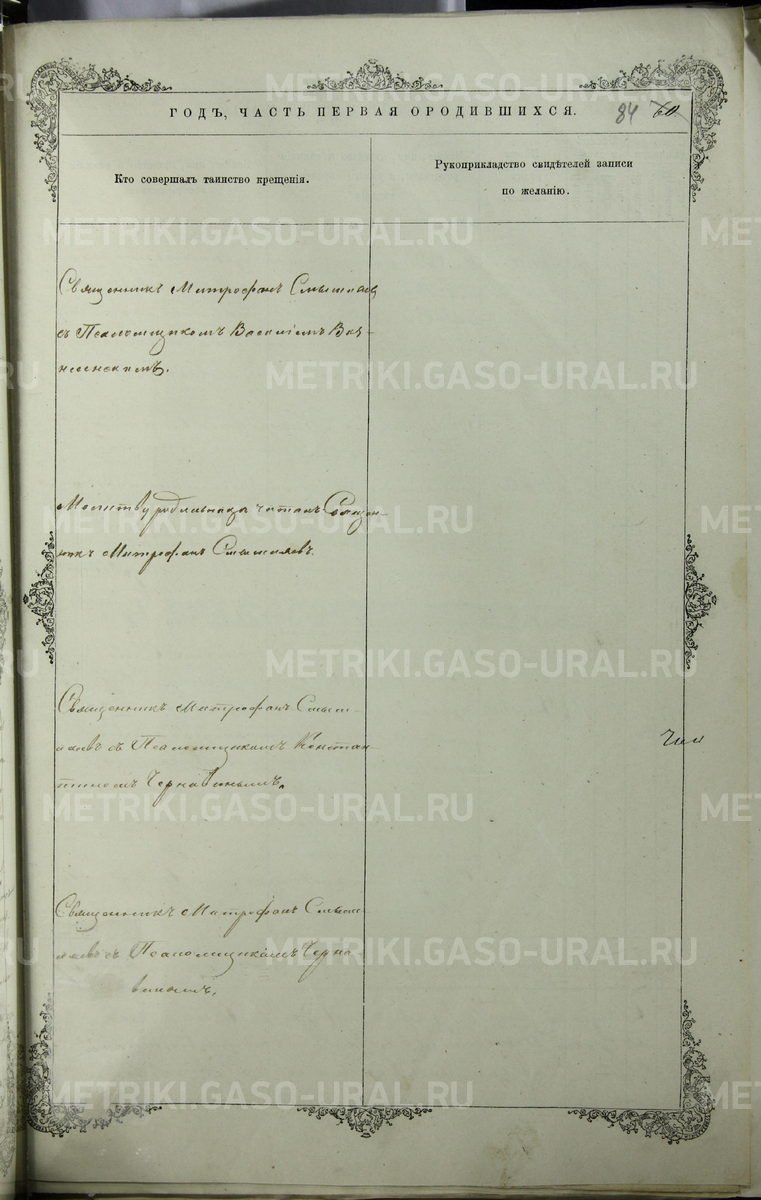 ГОДЪ, ЧАСТЬ ПЕРВАЯ ОРОДИВШИХСЯ. 84 60
Кто совершалъ таинство крещенія.
Рукоприкладство свидѣтелей записи
по желанію.
Священникъ Митрофанъ Смышляев
съ Псаломщикомъ Василіемъ Воз-
несенскимъ.
Молитву родильницѣ читалъ Священ-
никъ Митрофанъ Смышляевъ.
Священникъ Митрофанъ Смыш-
ляевъ съ Псаломщикомъ Констан-
тиномъ Чернавинымъ.
Священникъ Митрофанъ Смыш-
ляевъ съ Псаломщикомъ Черна-
винымъ.
METRIKI.GASO-URAL.RU